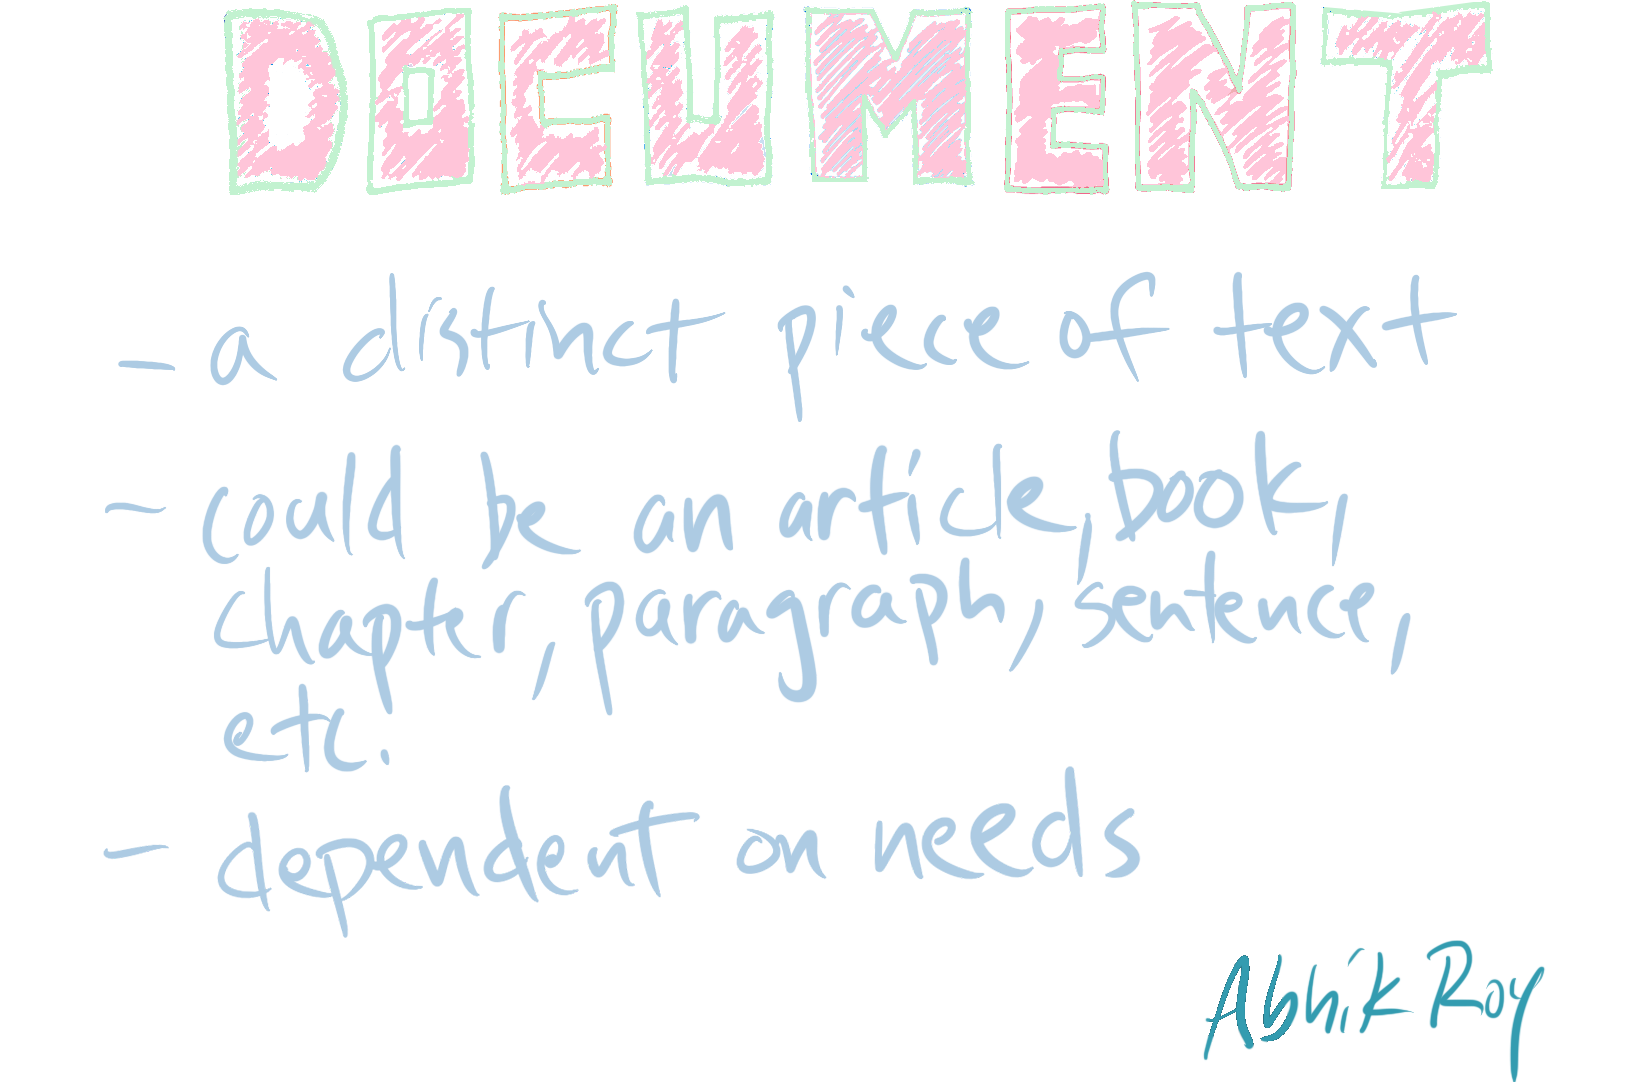 DOCUMENT
- a distinct piece of text
- could be an article, book,
chapter, paragraph, sentence,
etc.
- dependent on needs
Abhik Roy